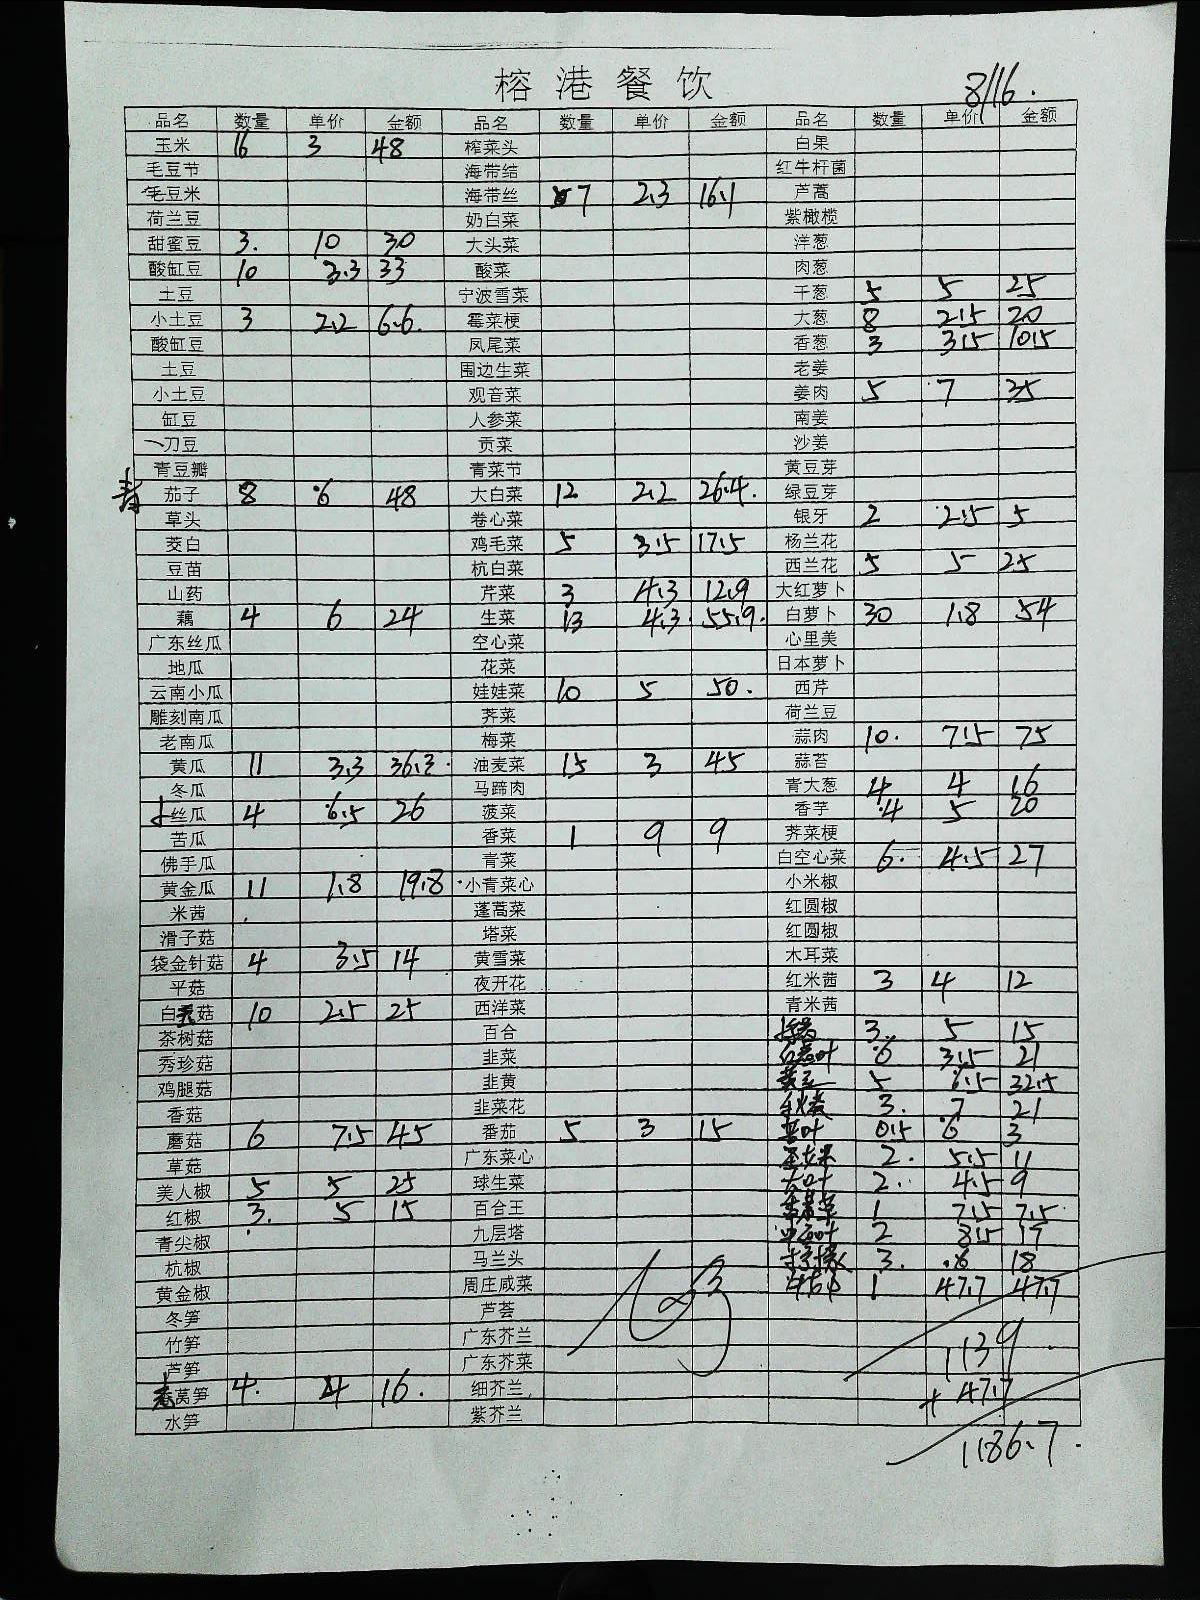 榕港餐饮
8/16.
品名 数量 单价 金额 品名 数量 单价 金额 品名 数量 单价 金额
玉米 16 3 48 榨菜头 白果
毛豆节 海带结 红牛杆菌
毛豆米 海带丝 7 2.3 16.1 芦蒿
荷兰豆 奶白菜 紫橄榄
甜蜜豆 3. 10 30 大头菜 洋葱
酸缸豆 10 3.3 33 酸菜 肉葱
土豆 宁波雪菜 干葱 5 5 25
小土豆 3 2.2 6.6. 霉菜梗 大葱 8 2.5 20
酸缸豆 凤尾菜 香葱 3 3.5 10.5
土豆 围边生菜 老姜
小土豆 观音菜 姜肉 5 7 35
缸豆 人参菜 南姜
刀豆 贡菜 沙姜
青豆瓣 青菜节 黄豆芽
青茄子 8 6 48 大白菜 12 2.2 26.4. 绿豆芽
草头 卷心菜 银牙 2 2.5 5
茭白 鸡毛菜 5 3.5 17.5 杨兰花
豆苗 杭白菜 西兰花 5 5 25
山药 芹菜 3 4.3 12.9 大红萝卜
藕 4 6 24 生菜 13 4.3 55.9. 白萝卜 30 1.8 54
广东丝瓜 空心菜 心里美
地瓜 花菜 日本萝卜
云南小瓜 娃娃菜 10 5 50. 西芹
雕刻南瓜 荠菜 荷兰豆
老南瓜 梅菜 蒜肉 10. 7.5 75
黄瓜 11 3.3 36.3. 油麦菜 15 3 45 蒜苔
冬瓜 马蹄肉 青大葱 4 4 16
丝瓜 4 6.5 26 菠菜 香芋 4 5 20
苦瓜 香菜 1 9 9 荠菜梗
佛手瓜 青菜 白空心菜 6. 4.5 27
黄金瓜 11 1.8 19.8 小青菜心 小米椒
米茜 蓬蒿菜 红圆椒
滑子菇 塔菜 红圆椒
袋金针菇 4 3.5 14 黄雪菜 木耳菜
平菇 夜开花 红米茜 3 4 12
白菇 10 2.5 25 西洋菜 青米茜
茶树菇 百合 3. 5 15
秀珍菇 韭菜 6 3.5 21
鸡腿菇 韭黄 5 6.5 32.5
香菇 韭菜花 3. 7 21
蘑菇 6 7.5 45 番茄 5 3 15 0.5 6 3
草菇 广东菜心 2. 5.5 11
美人椒 5 5 25 球生菜 2. 4.5 9
红椒 3. 5 15 百合王 1 7.5 7.5
青尖椒 九层塔 2 8.5 17
杭椒 马兰头 3. 6 18
黄金椒 周庄咸菜 1 47.7 47.7
冬笋 芦荟
竹笋 广东芥兰 1139
芦笋 广东芥菜
莴笋 4. 4 16. 细芥兰 + 47.7
水笋 紫芥兰
1186.7.